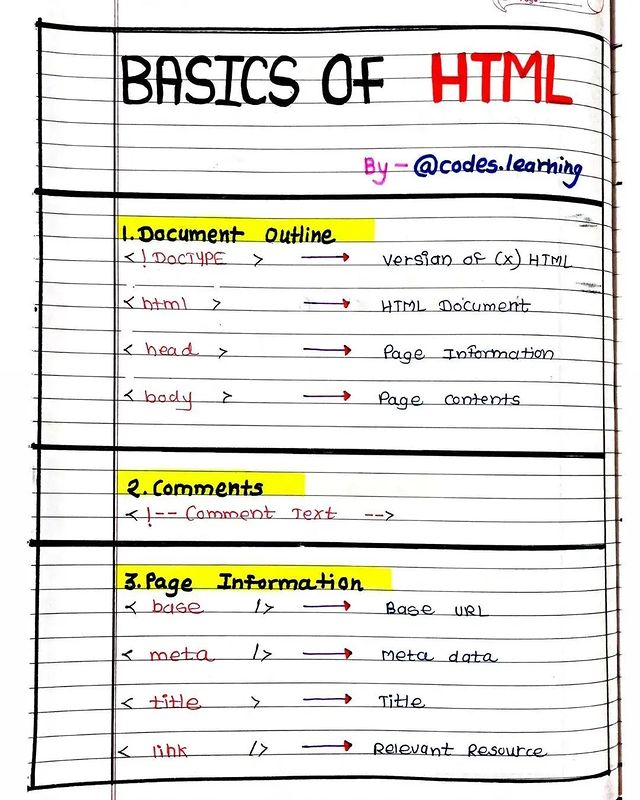 BASICS OF HTML
By - @codes.learning
1. Document Outline
<!DOCTYPE > → Version of (x) HTML
<html > → HTML Document
<head > → Page Information
<body > → Page contents
2. Comments
<!-- Comment Text -->
3. Page Information
<base /> → Base URL
<meta /> → Meta data
<title > → Title
<link /> → Relevant Resource